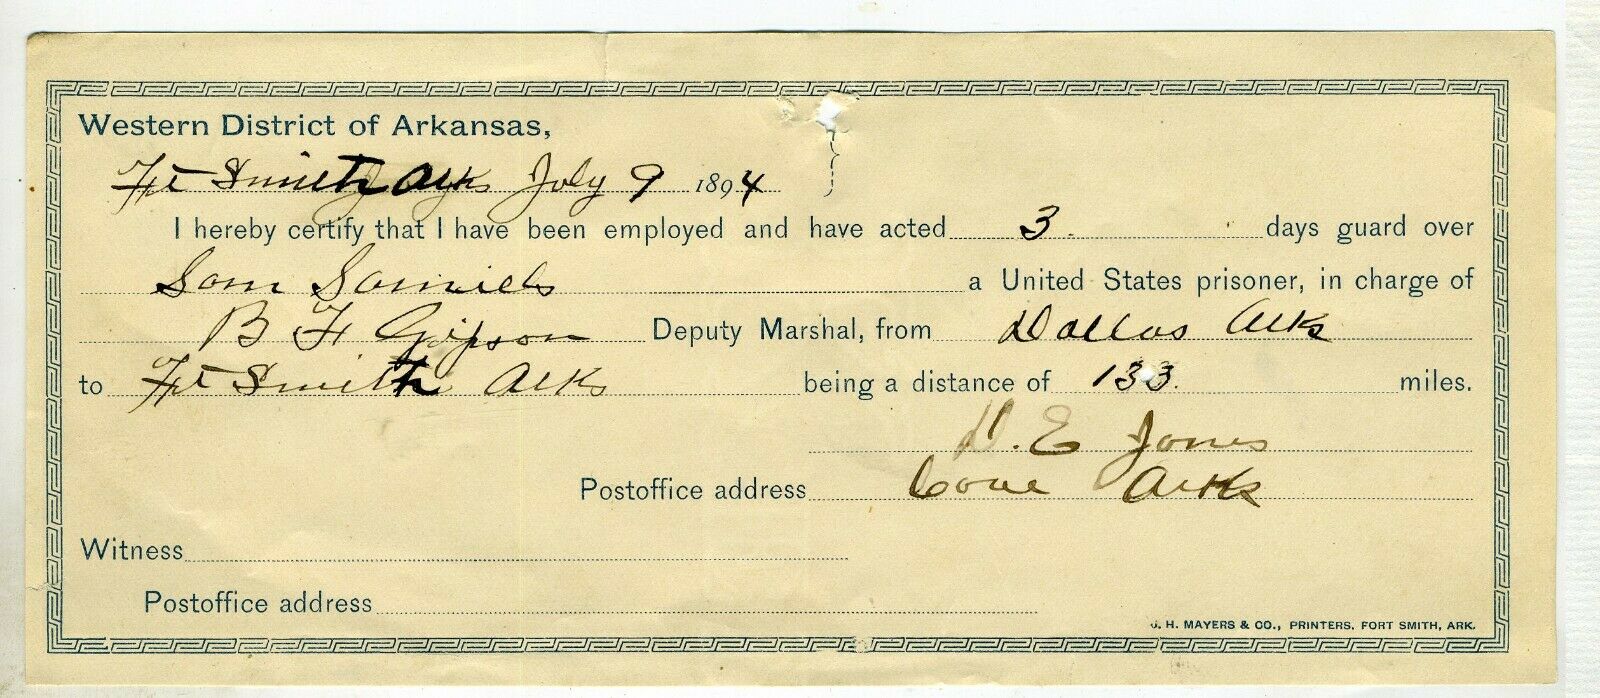 Western District of Arkansas,
Ft Smith Arks July 9 1894
I hereby certify that I have been employed and have acted 3 days guard over
Sam Samiels a United States prisoner, in charge of
B F Gipson Deputy Marshal, from Dallas Arks
to Ft Smith Arks being a distance of 133 miles.
D. E Jones
Postoffice address Cove Arks
Witness
Postoffice address
J. H. MAYERS & CO., PRINTERS, FORT SMITH, ARK.